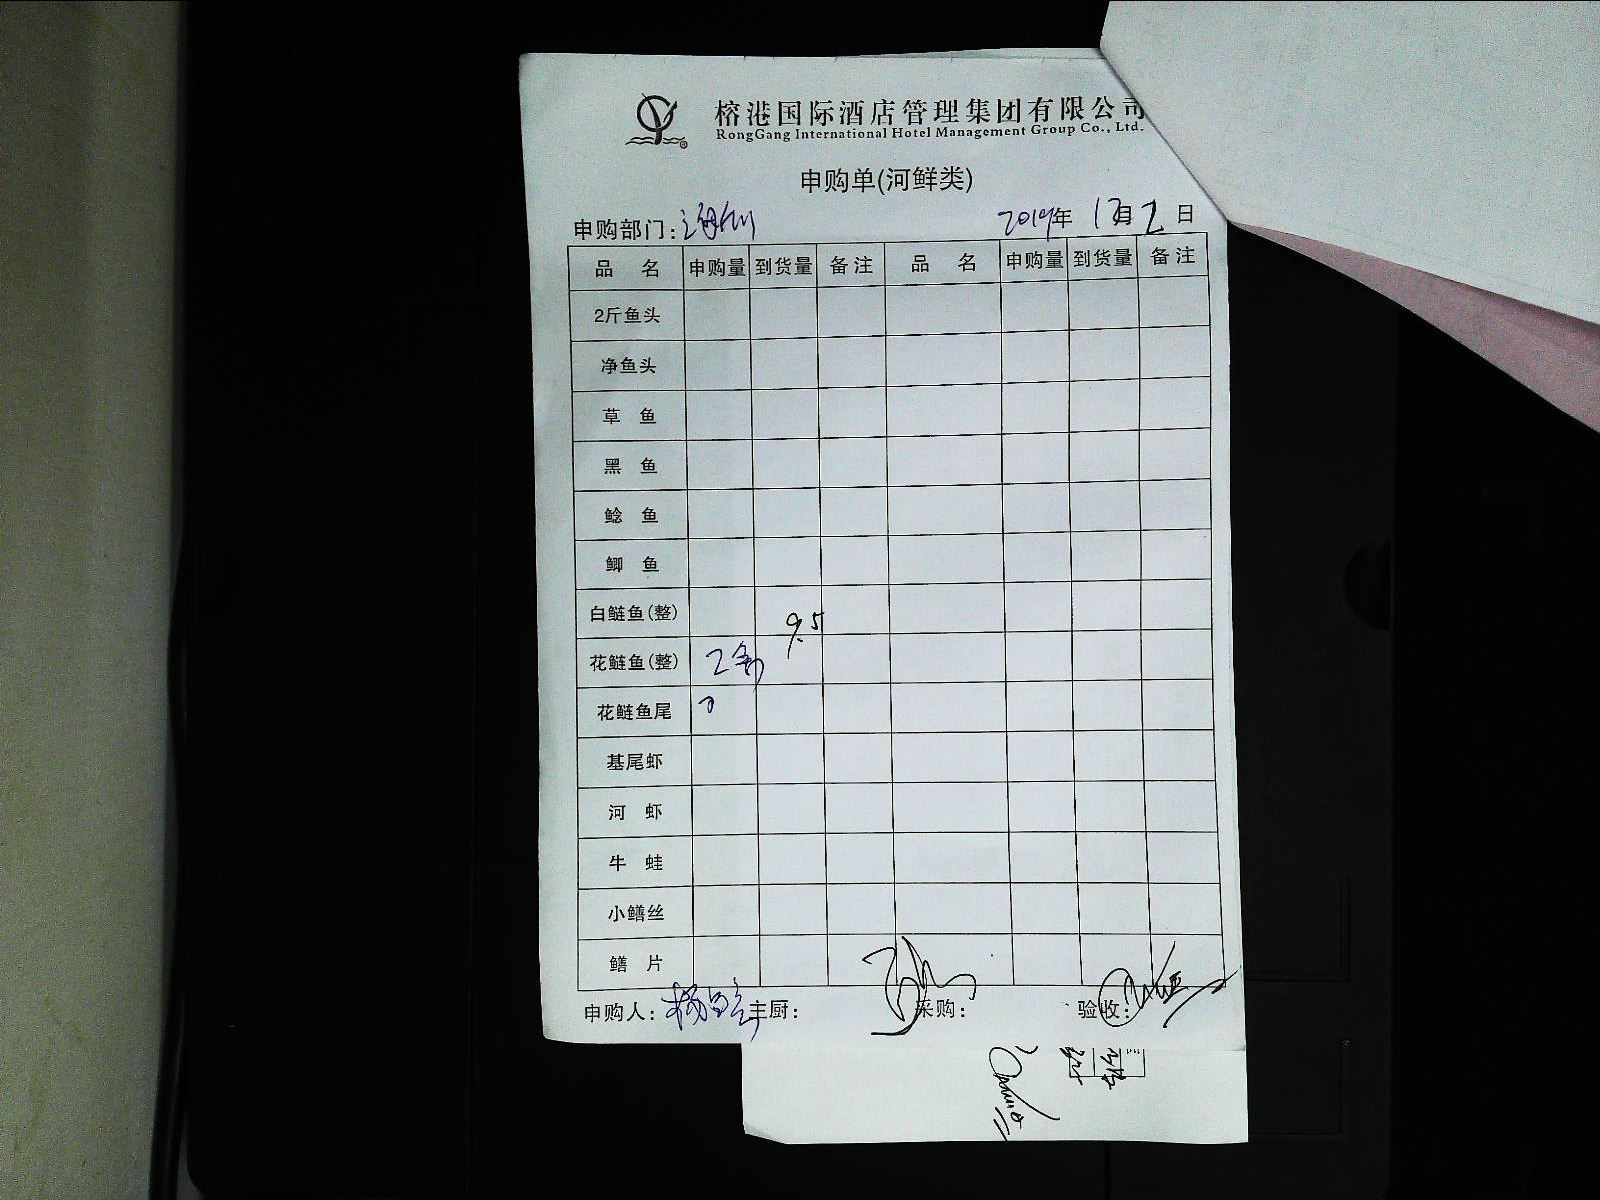 榕港国际酒店管理集团有限公司
RongGang International Hotel Management Group Co., Ltd.
申购单(河鲜类)
申购部门: 2019年 12月2日
品 名 申购量 到货量 备注 品 名 申购量 到货量 备注
2斤鱼头
净鱼头
草 鱼
黑 鱼
鲶 鱼
鲫 鱼
白鲢鱼(整)
9.5
花鲢鱼(整) 2条
花鲢鱼尾
基尾虾
河 虾
牛 蛙
小鳝丝
鳝 片
申购人: 主厨: 采购: 验收: